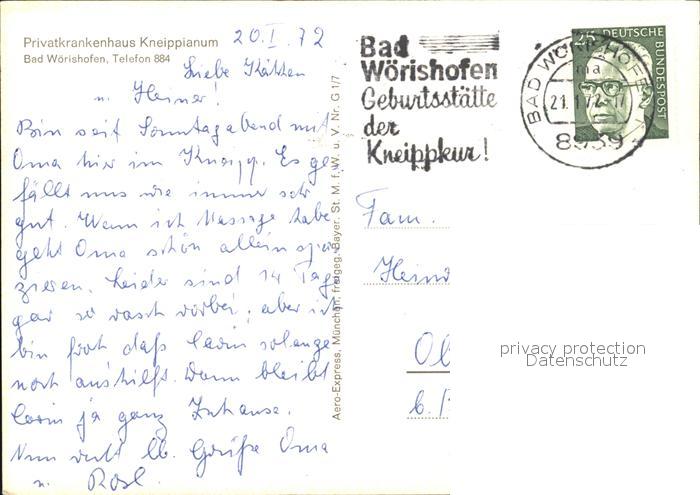 Privatkrankenhaus Kneippianum
Bad Wörishofen, Telefon 884
20.I.72
Liebe Käthen
u. Heiner!
Bin seit Sonntagabend mit
Oma hier im Kneipp. Es ge
fällt uns wie immer sehr
gut. Wenn ich Massage habe
geht Oma schön allein spa
zieren. Leider sind 14 Tag
gar so rasch vorbei, aber ich
bin froh daß solange
noch aushilft. Dann bleibt
ja ganz Zuhause.
Nun recht lb. Grüße Oma
u. Rosl.
Aero-Express, München, freigeg. Bayer. St. M. f. W. u. V. Nr. G 1/7
Bad
Wörishofen
Geburtsstätte
der
Kneippkur!
BAD WÖRISHOFEN 1
ma
21.1.72-17
8939
25 DEUTSCHE
BUNDESPOST
Fam.
Hein
privacy protection
Datenschutz